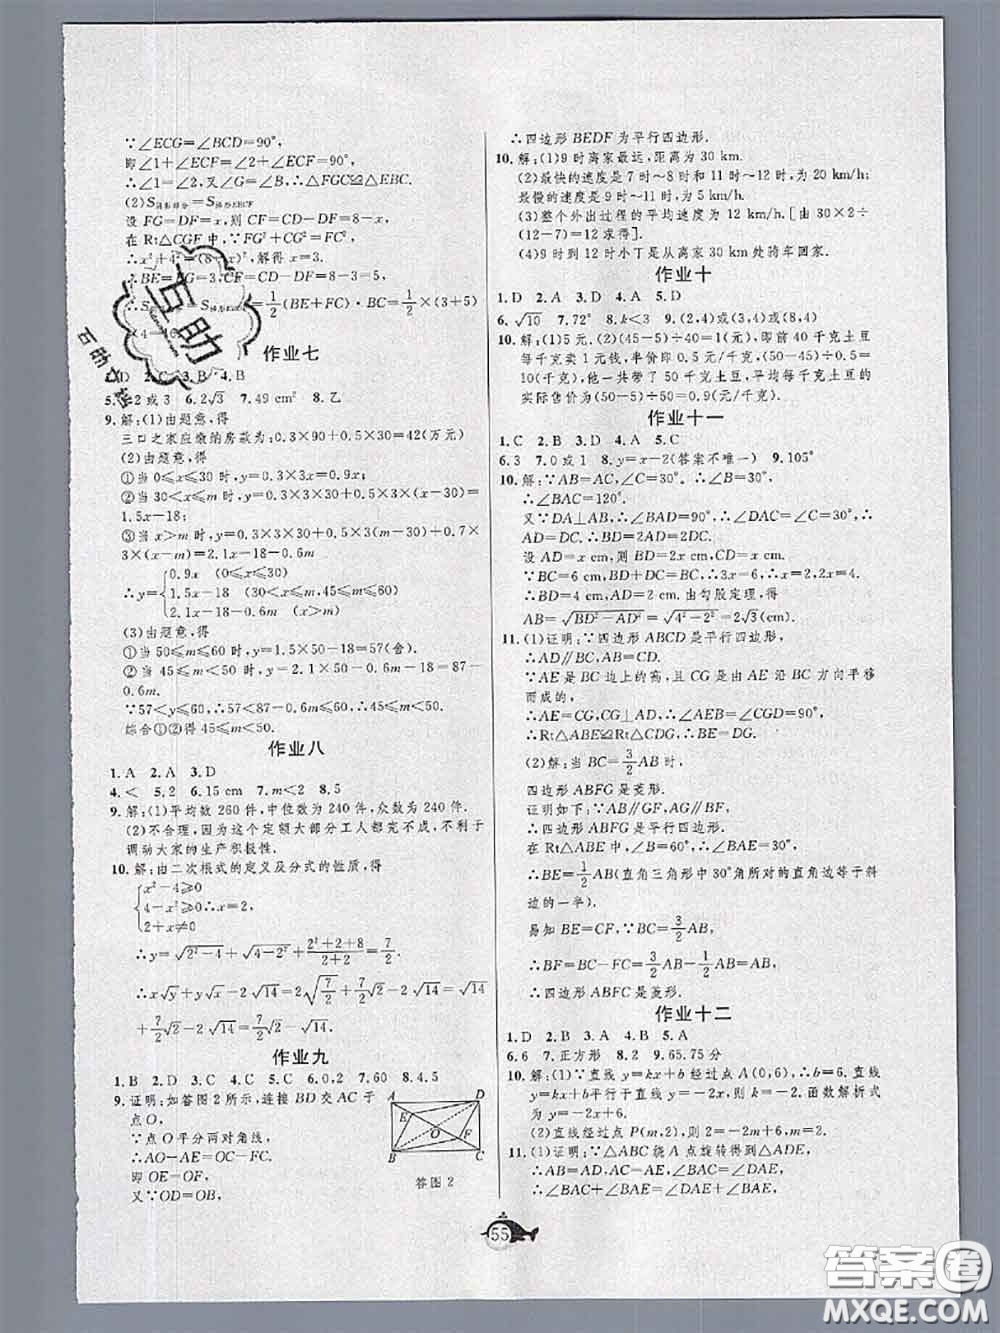 ∵∠ECG=∠BCD=90°,
即∠1+∠ECF=∠2+∠ECF=90°
∴∠1=∠2,又∠G=∠B,∴△FGC≌△EBC.
(2)S阴影部分=S梯形EBCF
设 FG=DF=x,则 CF=CD-DF=8-x,
在 Rt△CGF 中,∵FG²+CG²=CF²,
∴x²+4²=(8-x)²,解得 x=3.
∴BE=FG=3,CF=CD-DF=8-3=5,
=1/2(BE+FC)·BC=1/2×(3+5)
作业七
D 2.C 3.B 4.B
2或3 6.2√3 7.49 cm² 8.乙
9.解:(1)由题意,得
三口之家应缴纳房款为:0.3×90+0.5×30=42(万元)
(2)由题意,得
①当 0≤x≤30 时,y=0.3×3x=0.9x;
②当 30<x≤m 时,y=0.3×3×30+0.5×3×(x-30)=
1.5x-18;
③当 x>m 时,y=0.3×3×30+0.5×3(m-30)+0.7×
3×(x-m)=2.1x-18-0.6m
∴y={0.9x (0≤x≤30)
1.5x-18 (30<x≤m,45≤m≤60)
2.1x-18-0.6m (x>m)
(3)由题意,得
①当 50≤m≤60 时,y=1.5×50-18=57(舍).
②当 45≤m<50 时,y=2.1×50-0.6m-18=87-
0.6m.
∵57<y≤60,∴57<87-0.6m≤60,∴45≤m<50.
综合①②得 45≤m<50.
作业八
1.A 2.A 3.D
4.< 5.2 6.15 cm 7.m<2 8.5
9.解:(1)平均数 260 件,中位数为 240 件,众数为 240 件.
(2)不合理,因为这个定额大部分工人都完不成,不利于
调动大家的生产积极性.
10.解:由二次根式的定义及分式的性质,得
{x²-4≥0
4-x²≥0∴x=2,
2+x≠0
∴y=(√(2²-4)+√(4-2²)+2²+2+8)/(2+2)=7/2,
∴x√y+y√x-2√14=2√(7/2)+7/2√2-2√14=√14
+7/2√2-2√14=7/2√2-√14.
作业九
1.B 2.D 3.C 4.C 5.C 6.0,2 7.60 8.4.5
9.证明:如答图2所示,连接 BD 交 AC 于
点 O,
∵点 O 平分两对角线,
∴AO-AE=OC-FC.
即 OE=OF,
又∵OD=OB,
A D
E
O
F
B C
答图 2
∴四边形 BEDF 为平行四边形.
10.解:(1)9时离家最远,距离为 30 km.
(2)最快的速度是 7 时~8 时和 11 时~12 时,为 20 km/h;
最慢的速度是 9 时~11 时,为 5 km/h.
(3)整个外出过程的平均速度为 12 km/h.[由 30×2÷
(12-7)=12 求得].
(4)9时到 12 时小丁是从离家 30 km 处骑车回家.
作业十
1.D 2.A 3.D 4.A 5.D
6.√10 7.72° 8.k<3 9.(2,4)或(3,4)或(8,4)
10.解:(1)5元,(2)(45-5)÷40=1(元),即前 40 千克土豆
每千克卖 1 元钱,半价即 0.5 元/千克,(50-45)÷0.5=
10(千克),他一共带了 50 千克土豆,平均每千克土豆的
实际售价为(50-5)÷50=0.9(元/千克).
作业十一
1.C 2.B 3.D 4.A 5.C
6.3 7.0或1 8.y=x-2(答案不唯一) 9.105°
10.解:∵AB=AC,∠C=30°.∴∠B=30°,
∴∠BAC=120°.
又∵DA⊥AB,∴∠BAD=90°,∴∠DAC=∠C=30°,∴
AD=DC.∴BD=2AD=2DC.
设 AD=x cm,则 BD=2x cm,CD=x cm.
∵BC=6 cm,BD+DC=BC,∴3x=6,∴x=2.
∴BD=4 cm,AD=2 cm.由勾股定理,得
AB=√(BD²-AD²)=√(4²-2²)=2√3(cm)
11.(1)证明:∵四边形 ABCD 是平行四边形,
∴AD∥BC,AB=CD.
∵AE 是 BC 边上的高,且 CG 是由 AE 沿 BC 方向平移
而成的,
∴AE=CG,CG⊥AD,∴∠AEB=∠CGD=90°,
∴Rt△ABE≌Rt△CDG.∴BE=DG.
(2)解:当 BC=3/2AB 时,
四边形 ABFG 是菱形.
证明如下:∵AB∥GF,AG∥BF,
∴四边形 ABFG 是平行四边形.
在 Rt△ABE 中,∠B=60°,∴∠BAE=30°,
∴BE=1/2AB(直角三角形中 30°角所对的直角边等于斜
边的一半).
易知 BE=CF,∵BC=3/2AB,
∴BF=BC-FC=3/2AB-1/2AB=AB,
∴四边形 ABFC 是菱形.
作业十二
1.D 2.B 3.A 4.B 5.A
6.6 7.正方形 8.2 9.65.75分
10.解:(1)∵直线 y=kx+b 经过点 A(0,6),∴b=6,直线
y=kx+b 平行于直线 y=-2x,∴k=-2,函数解析式
为 y=-2x+6.
(2)直线经过点 P(m,2),则 2=-2m+6,∴m=2.
11.(1)证明:∵△ABC 绕 A 点旋转得到△ADE,
∴AB=AD,AC=AE,∠BAC=∠DAE,
∴∠BAC+∠BAE=∠DAE+∠BAE,
55
互助
答案卷
MXQE.COM